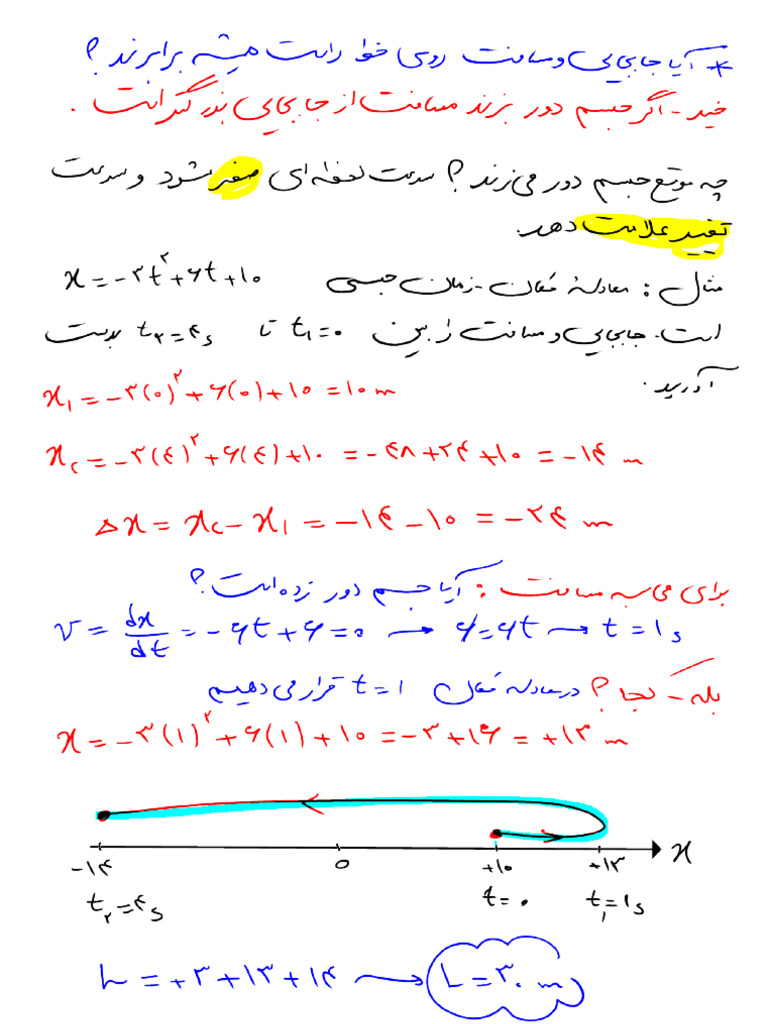 * آیا جابجایی و مسافت روی خط راست همیشه برابرند؟
خیر - اگر جسم دور بزند مسافت از جابجایی بزرگتر است.
چه موقع جسم دور می‌زند؟ سرعت لحظه‌ای صفر شود و سرعت
تغییر علامت دهد.
مثال: معادله مکان-زمان جسمی x = -۳t^۲ + ۶t + ۱۰
است. جابجایی و مسافت را بین t₁=۰ تا t₂=۴s بدست
آورید.
x₁ = -۳(۰)^۲ + ۶(۰) + ۱۰ = ۱۰ m
x₂ = -۳(۴)^۲ + ۶(۴) + ۱۰ = -۴۸ + ۲۴ + ۱۰ = -۱۴ m
Δx = x₂ - x₁ = -۱۴ - ۱۰ = -۲۴ m
برای محاسبه مسافت: آیا جسم دور زده است؟
v = dx/dt = -۶t + ۶ = ۰ → ۶ = ۶t → t = ۱s
بله - کجا؟ در معادله مکان t = ۱ قرار می‌دهیم
x = -۳(۱)^۲ + ۶(۱) + ۱۰ = -۳ + ۱۶ = +۱۳ m
-۱۴ 0 +۱۰ +۱۳ x
t₂=۴s t=۰ t₁=۱s
L = +۳ + ۱۳ + ۱۴ → L = ۳۰ m